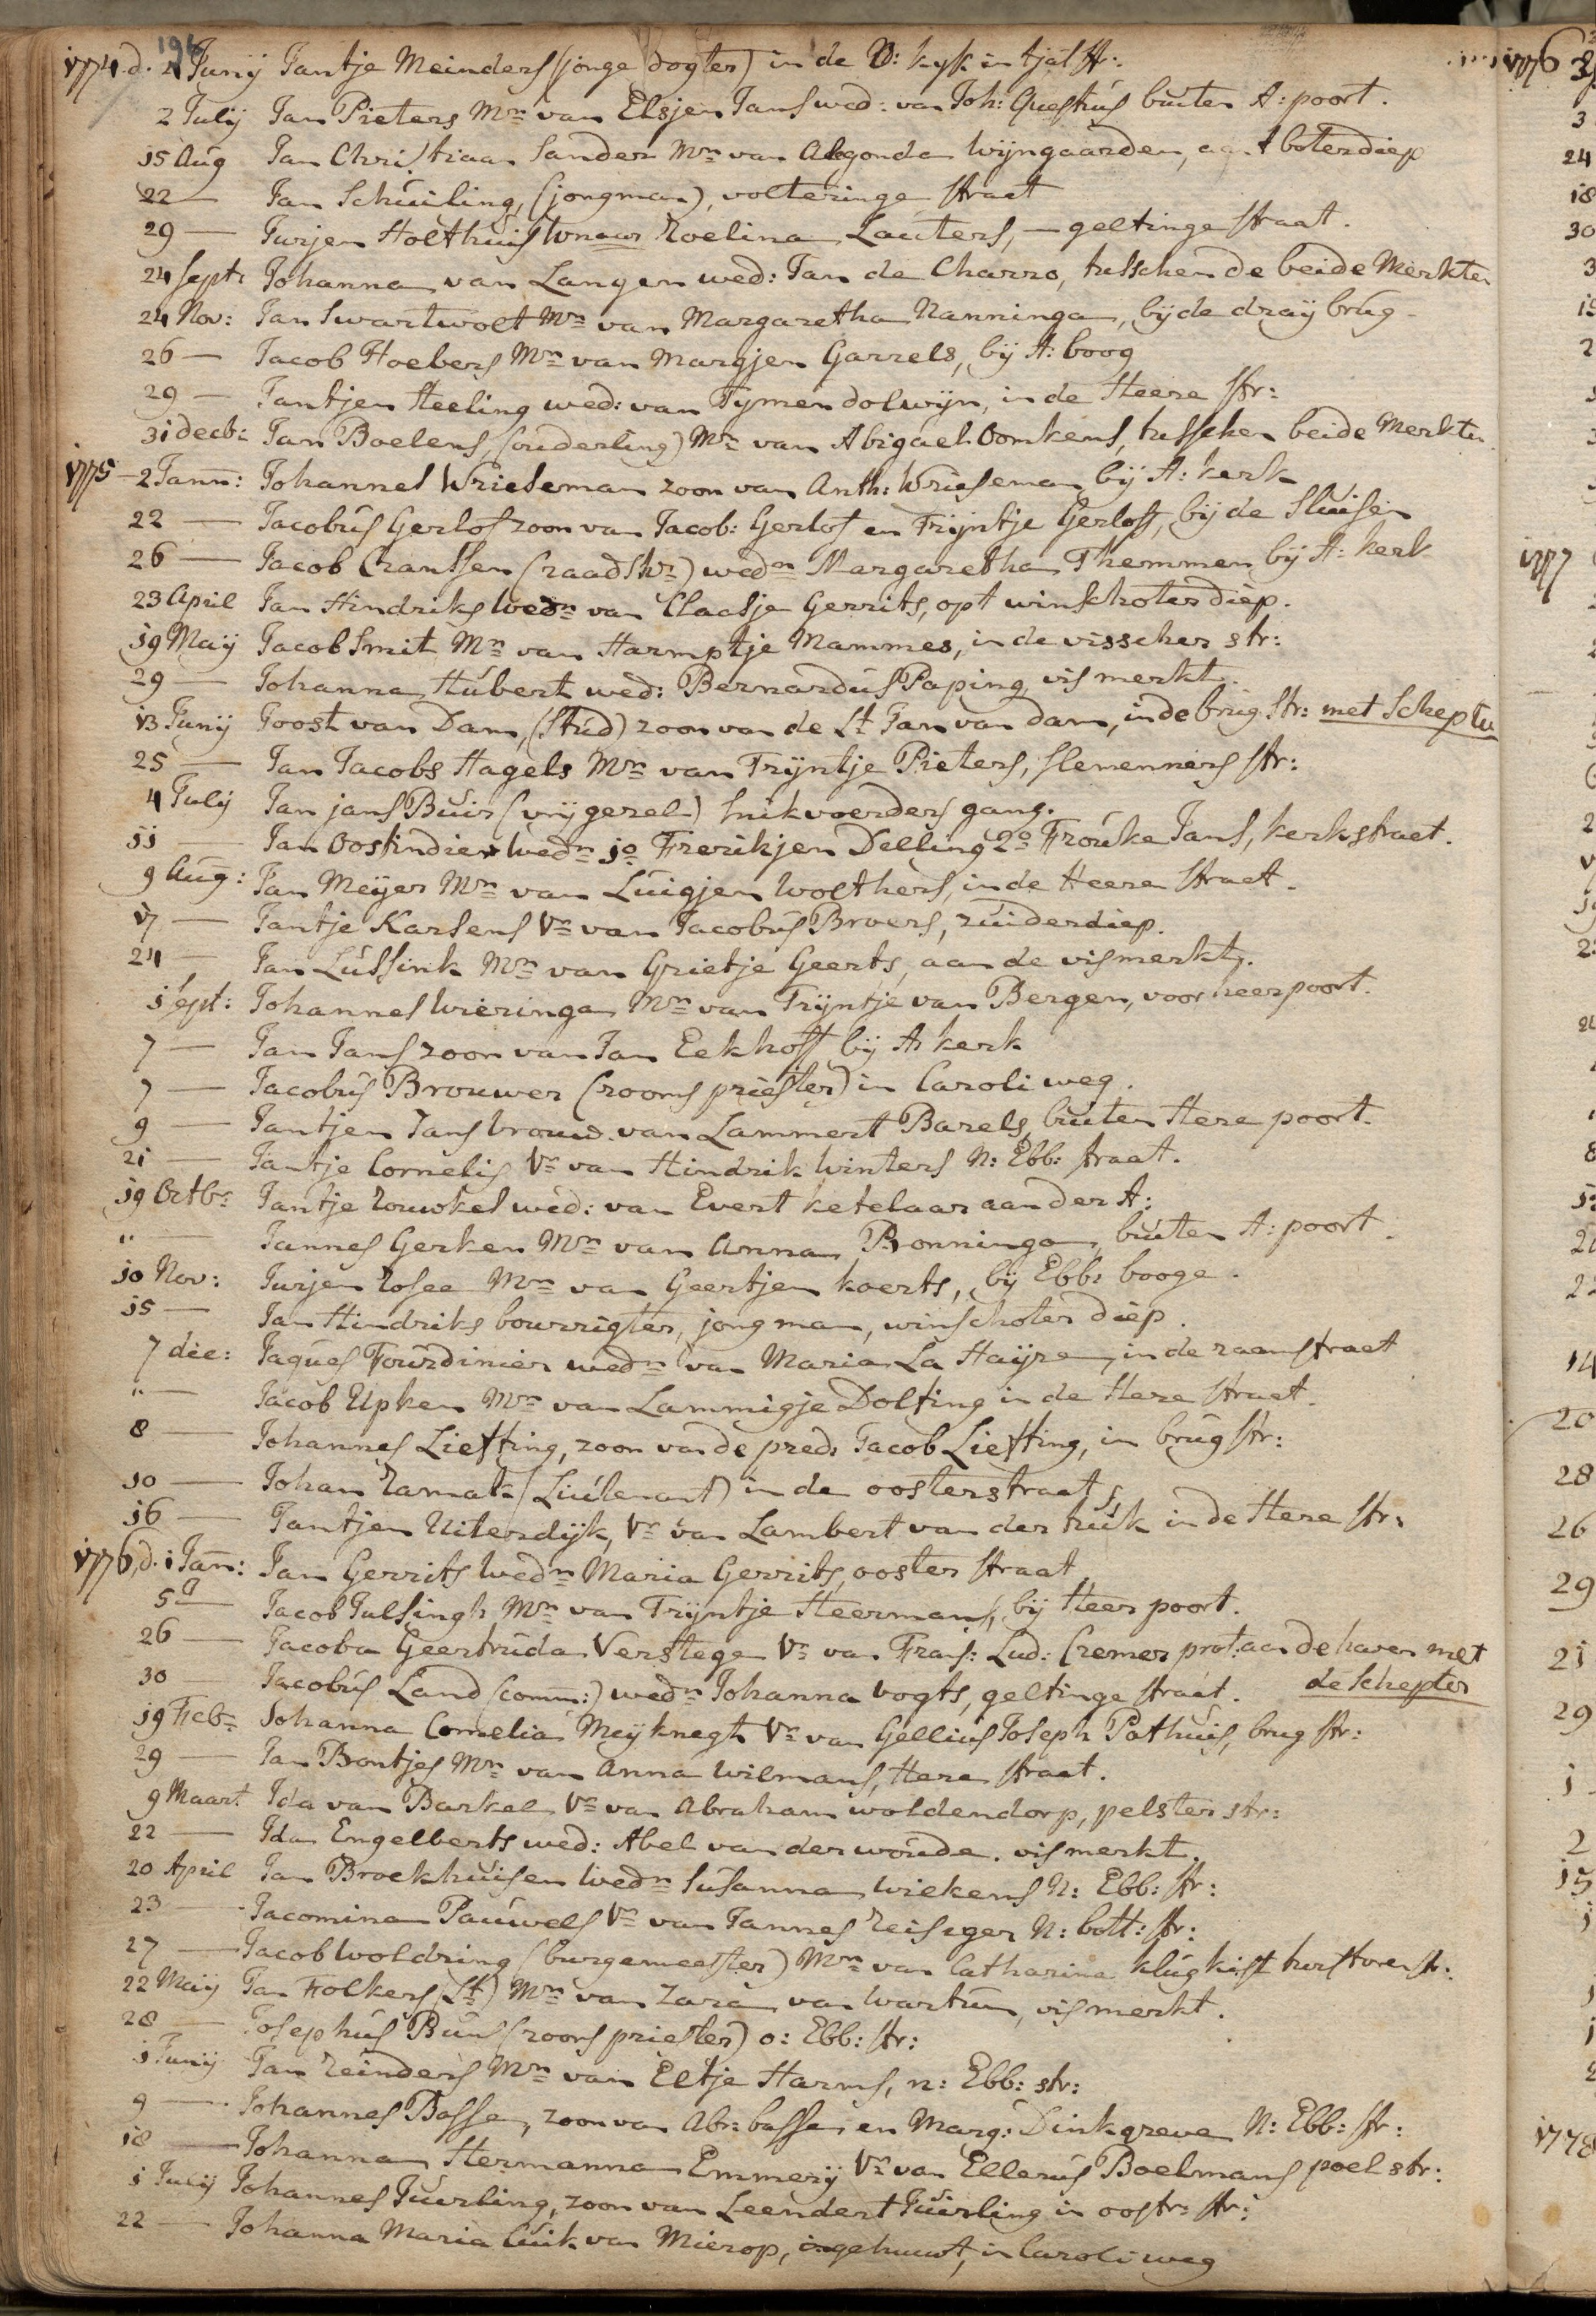 196
1774. d. 4 Junij Jantje Meinders (jonge dogter) in de D: kijk in tjat st:
2 Julij Jan Pieters Mn van Elsjen Jans wed: van Joh: Questius buiten A: poort.
15 Aug Jan Christiaan Sander Mn van Alegonda Wijngaarden, aan t boterdiep
22 — Jan Schuiling, (jongman), volteringe straat
29 — Jurjen Holthuis Wnaar Roelina Lauters, — geltinge straat.
24 Septr Johanna van Langen wed: Jan de Charro, tusschen de beide Merkten
24 Nov: Jan Swartwolt Mn van Margaretha Nanninga, bij de draij brug.
26 — Jacob Hoebers Mn van Margjen Garrels, bij A: boog
29 — Jantjen Heeling wed: van Tymen dolwijn, in de Heere str:
31 decb: Jan Boelens, (ouderling) Mn van Abigael Oomkens, tusschen beide Merkten
1775 - 2 Jann: Johannes Wrieseman zoon van Anth: Wrieseman bij A: kerk
22 — Jacobus Gerlof zoon van Jacob: Gerlof en Trijntje Gerloff, bij de Sluisen
26 — Jacob Cranssen (raadshr) wedn Margaretha Themmen bij A: kerk
23 April Jan Hindriks Wedn van Claasje Gerrits, opt winschoter diep.
19 Maij Jacob Smit Mn van Harmptje Mammes, in de visscher str:
29 — Johanna Hubert wed: Bernardus Paping, vis merkt.
13 Junij Joost van Dam, (Stud) zoon van de Lt Jan van dam, in de brug str: met Schepter
25 — Jan Jacobs Hagels Mn van Trijntje Pieters, slemenners str:
4 Julij Jan jans Buir (vrijgezel) snikvoerders gang.
11 — Jan Oostindier Wedn 1o Frerikjen Delling 2o Frouke Jans, kerkstraet.
9 Aug: Jan Meijer Mn van Luigjen Wolthers, in de Heere straet.
17 — Jantje Karsens Vr van Jacobus Broers, zuiderdiep.
24 — Jan Lussink Mn van Grietje Geerts, aan de vismerkt.
1 Sept: Johannes Wieringa Mn van Trijntje van Bergen, voor heer poort.
7 — Jan Jans zoon van Jan Eekhoff bij A kerk
7 — Jacobus Brouwer (rooms priester) in Caroli weg.
9 — Jantjen Jans vrouw van Lammert Barels, buiten Here poort.
21 — Jantje Cornelis Vr van Hindrik Winters N: Ebb: straat.
19 Octbr Jantje wed: van Evert ketelaar aan der A:
" — Jannes Gerken Mn van Anna Bonninga, buiten A: poort.
10 Nov: Jurjen Rosee Mn van Geertjen koerts, bij Ebb: booge.
15 — Jan Hindriks bouwrigter, jong man, winschoter diep.
7 dec: Jaques Fourdinier wedn van Maria La Haijze, in de raamstraet
" — Jacob Upken Mn van Lammigje Dolfing in de Here straet.
8 — Johannes Liefting, zoon van de pred: Jacob Liefting, in brug str:
10 — Johan Ramak (Luitenant) in de oosterstraet
16 — Jantjen Uiterdijk, Vr van Lambert van der tuik in de Here str:
1776, d. 1 Jan: Jan Gerrits Wedn Maria Gerrits, ooster straat
5 — Jacob Julsingh Mn van Trijntje Heermans, bij Heer poort.
26 — Jacoba Geertruida Verstege Vr van Frans: Lud: Cremer prof: aan de haven met de Schepter
30 — Jacobus Land (comm:) wedn Johanna Vogts, geltinge straat.
19 Febr Johanna Cornelia Meijknegt Vr van Gellius Joseph Pathuis, brug str:
29 — Jan Bontjes Mn van Anna Wilmans, Here straat.
9 Maart Ida van Barkel Vr van Abraham woldendorp, pelster str:
22 — Ida Engelberts wed: Abel van der woude. vis merkt.
20 April Jan Broekhuisen Wedn Susanna Wiekens N: Ebb: str:
23 — Jacomina Pauwels Vr van Jannes Reisiger N: bott: str:
27 — Jacob Woldring (burgemeester) Mn van Catharina Klugkist str:
22 Maij Jan Folkers (Lt) Mn van Zara van Wartum, vismerkt.
28 — Josephus Buns (rooms priester) o: Ebb: str:
1 Junij Jan Reinders Mn van Eltje Harms, n: Ebb: str:
9 — Johannes Basse, zoon van Abr: basse en Marg: Dinkgreve N: Ebb: str:
18 — Johanna Hermanna Emmerij Vr van Ellerus Boelmans poel str:
1 Julij Johannes Juirling, zoon van Leendert Juirling in oostr: str:
22 — Johanna Maria Cuik van Mierop, ingehuwt, in Caroli weg
1776
3
24
18
30
1777
14
20
28
26
29
21
29
1
2
15
1778